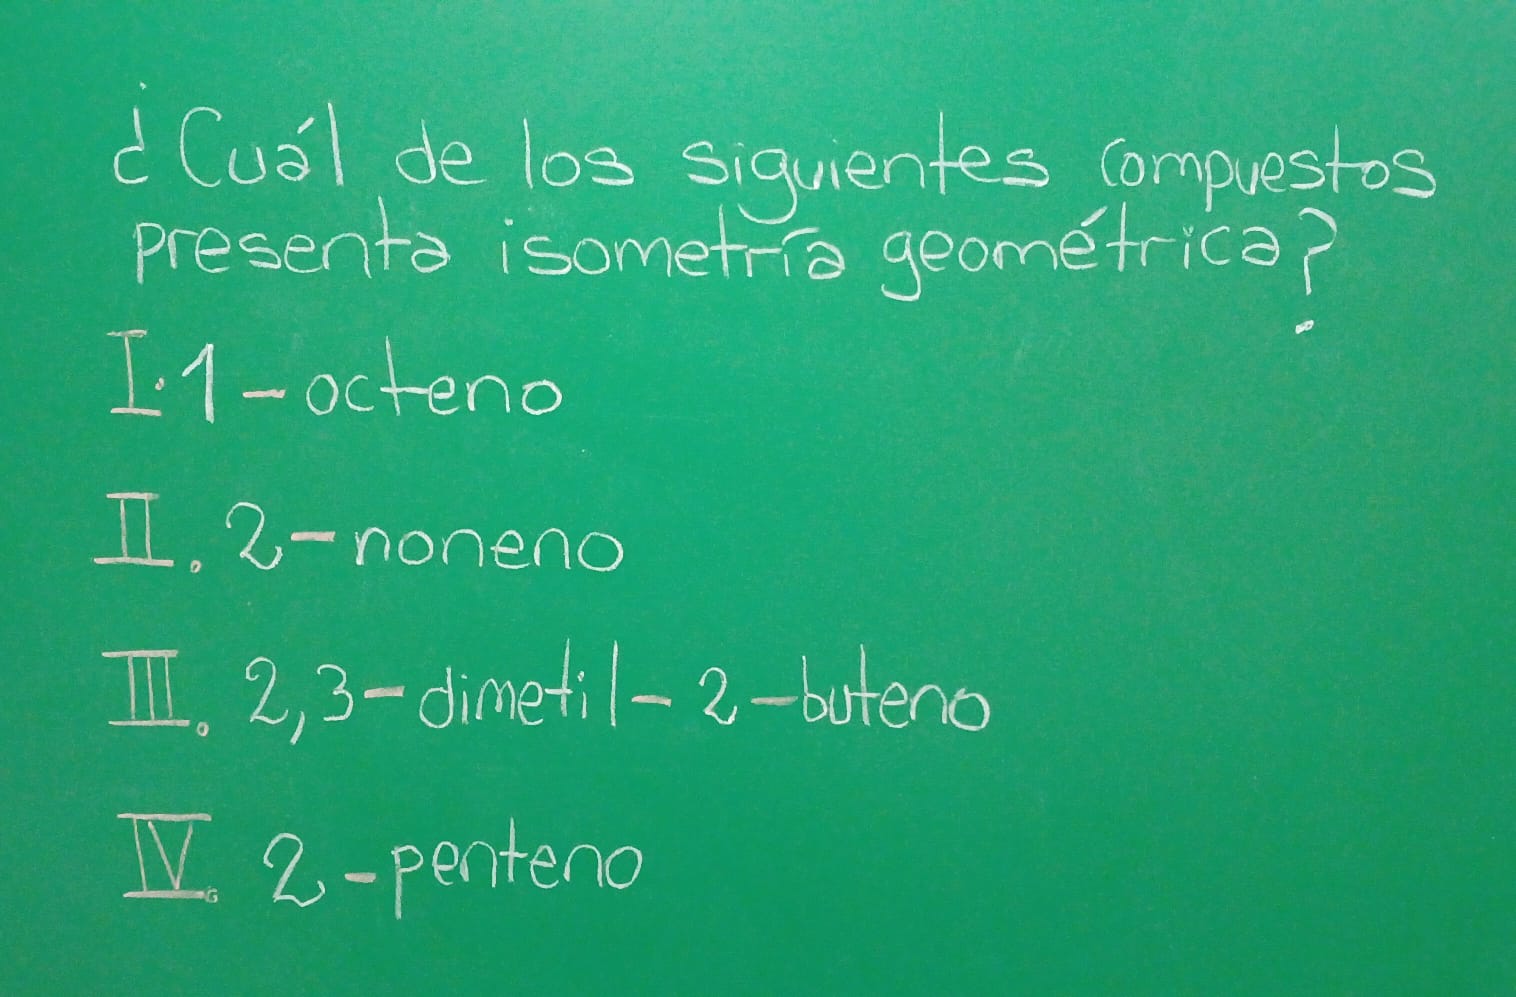 ¿Cuál de los siguientes compuestos
presenta isometría geométrica?
I. 1-octeno
II. 2-noneno
III. 2,3-dimetil-2-buteno
IV. 2-penteno